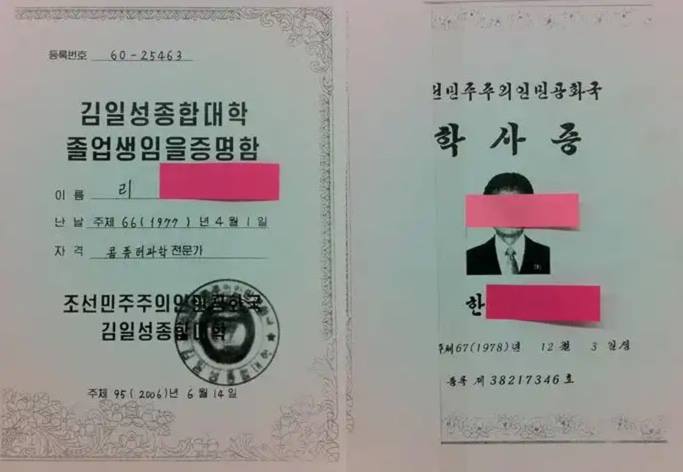 등록번호 60-25463
김일성종합대학
졸업생임을증명함
이 름 리
난 날 주체 66(1977)년 4월 1일
자 격 콤퓨터과학 전문가
조선민주주의인민공화국
김일성종합대학
주체 95(2006)년 6월 14일
선민주주의인민공화국
학 사 증
한
주체67(1978)년 12월 3일생
등록 제 38217346 호